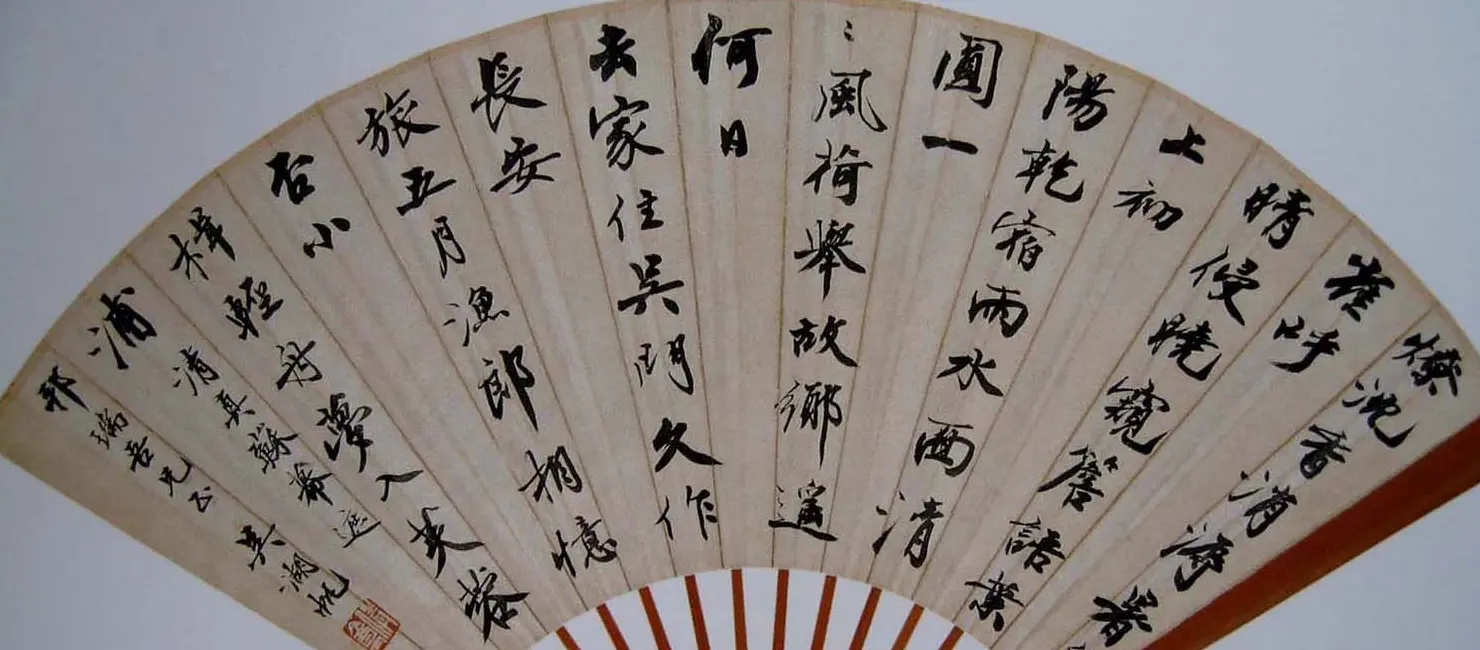 燎沈香消溽暑
雀呼
晴侵曉窺簷語葉
上初
陽乾宿雨水面清
圓一
〻風荷舉故鄉遥
何日
去家住吳門久作
長安
旅五月漁郎相憶
否小
楫輕舟夢入芙蓉
浦 清真蘇幕遮
邦瑞吾兄正 吳湖帆